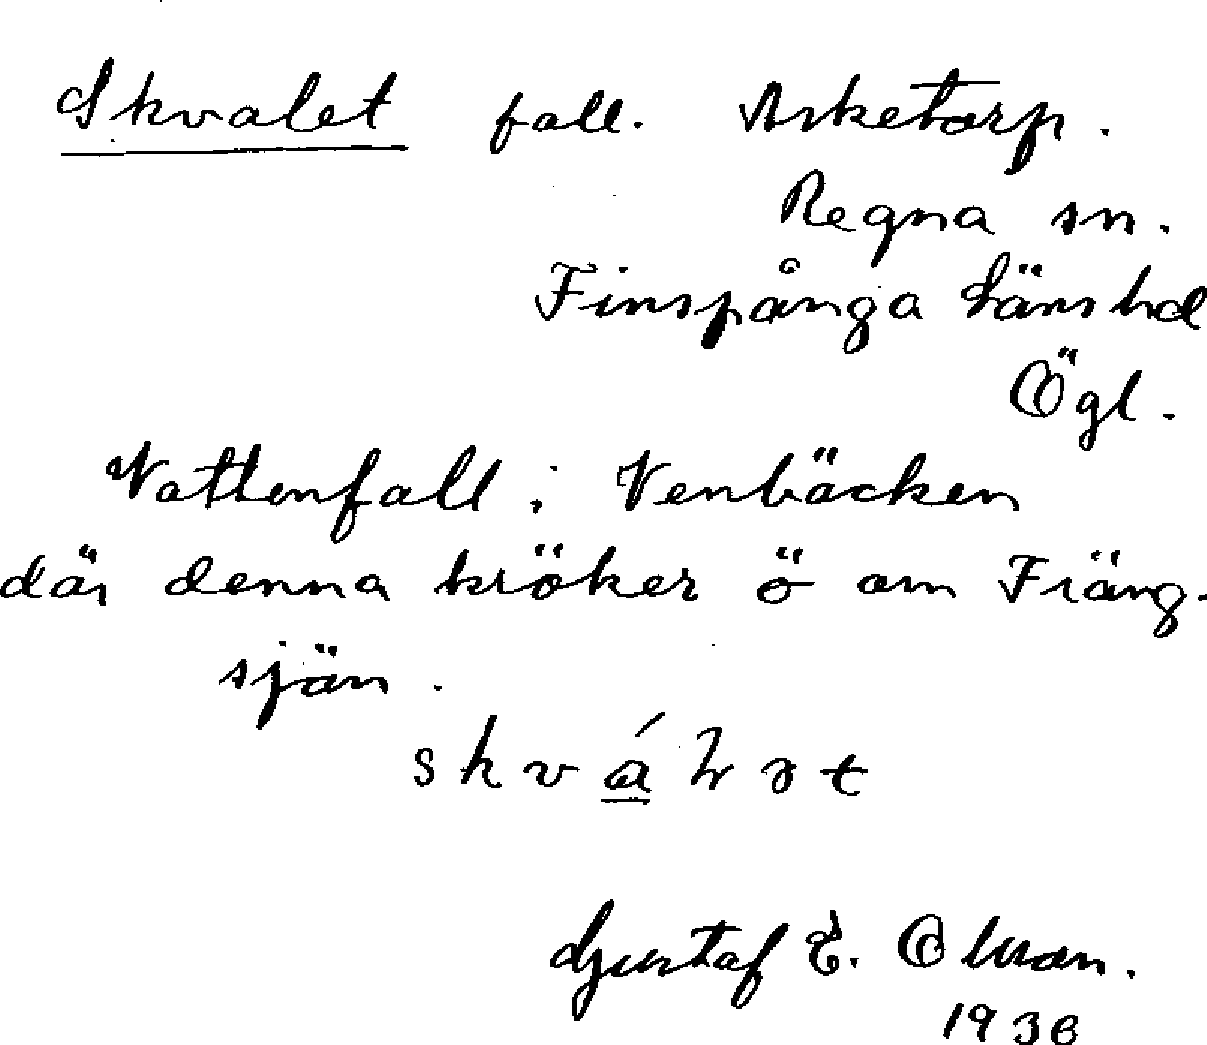 Skvalet fall. Asketorp.
Regna sn.
Finspånga länshd
Ögl.
Vattenfall i Venbäcken
där denna kröker ö om Fräng-
sjön.
Gustaf E. Olsson.
1936